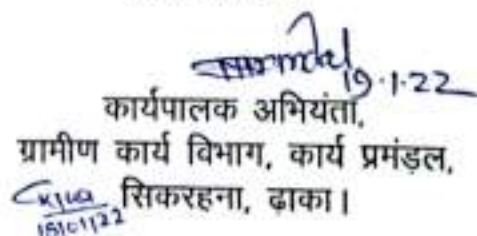 19.1.22
कार्यपालक अभियंता,
ग्रामीण कार्य विभाग, कार्य प्रमंड़ल,
सिकरहना, ढ़ाका।
19/01/22